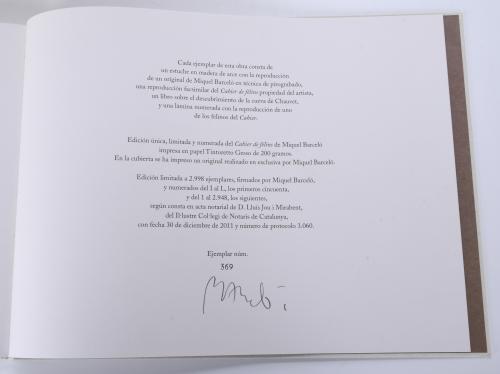 Cada ejemplar de esta obra consta de
un estuche en madera de arce con la reproducción
de un original de Miquel Barceló en técnica de pirograbado,
una reproducción facsímilar del Cahier de félins propiedad del artista,
un libro sobre el descubrimiento de la cueva de Chauvet,
y una lámina numerada con la reproducción de uno
de los felinos del Cahier.
Edición única, limitada y numerada del Cahier de félins de Miquel Barceló
impresa en papel Tintoretto Gesso de 200 gramos.
En la cubierta se ha impreso un original realizado en exclusiva por Miquel Barceló.
Edición limitada a 2.998 ejemplares, firmados por Miquel Barceló,
y numerados del I al L, los primeros cincuenta,
y del 1 al 2.948, los siguientes,
según consta en acta notarial de D. Lluís Jou i Mirabent,
del Il·lustre Col·legi de Notaris de Catalunya,
con fecha 30 de diciembre de 2011 y número de protocolo 3.060.
Ejemplar núm.
369
Barceló